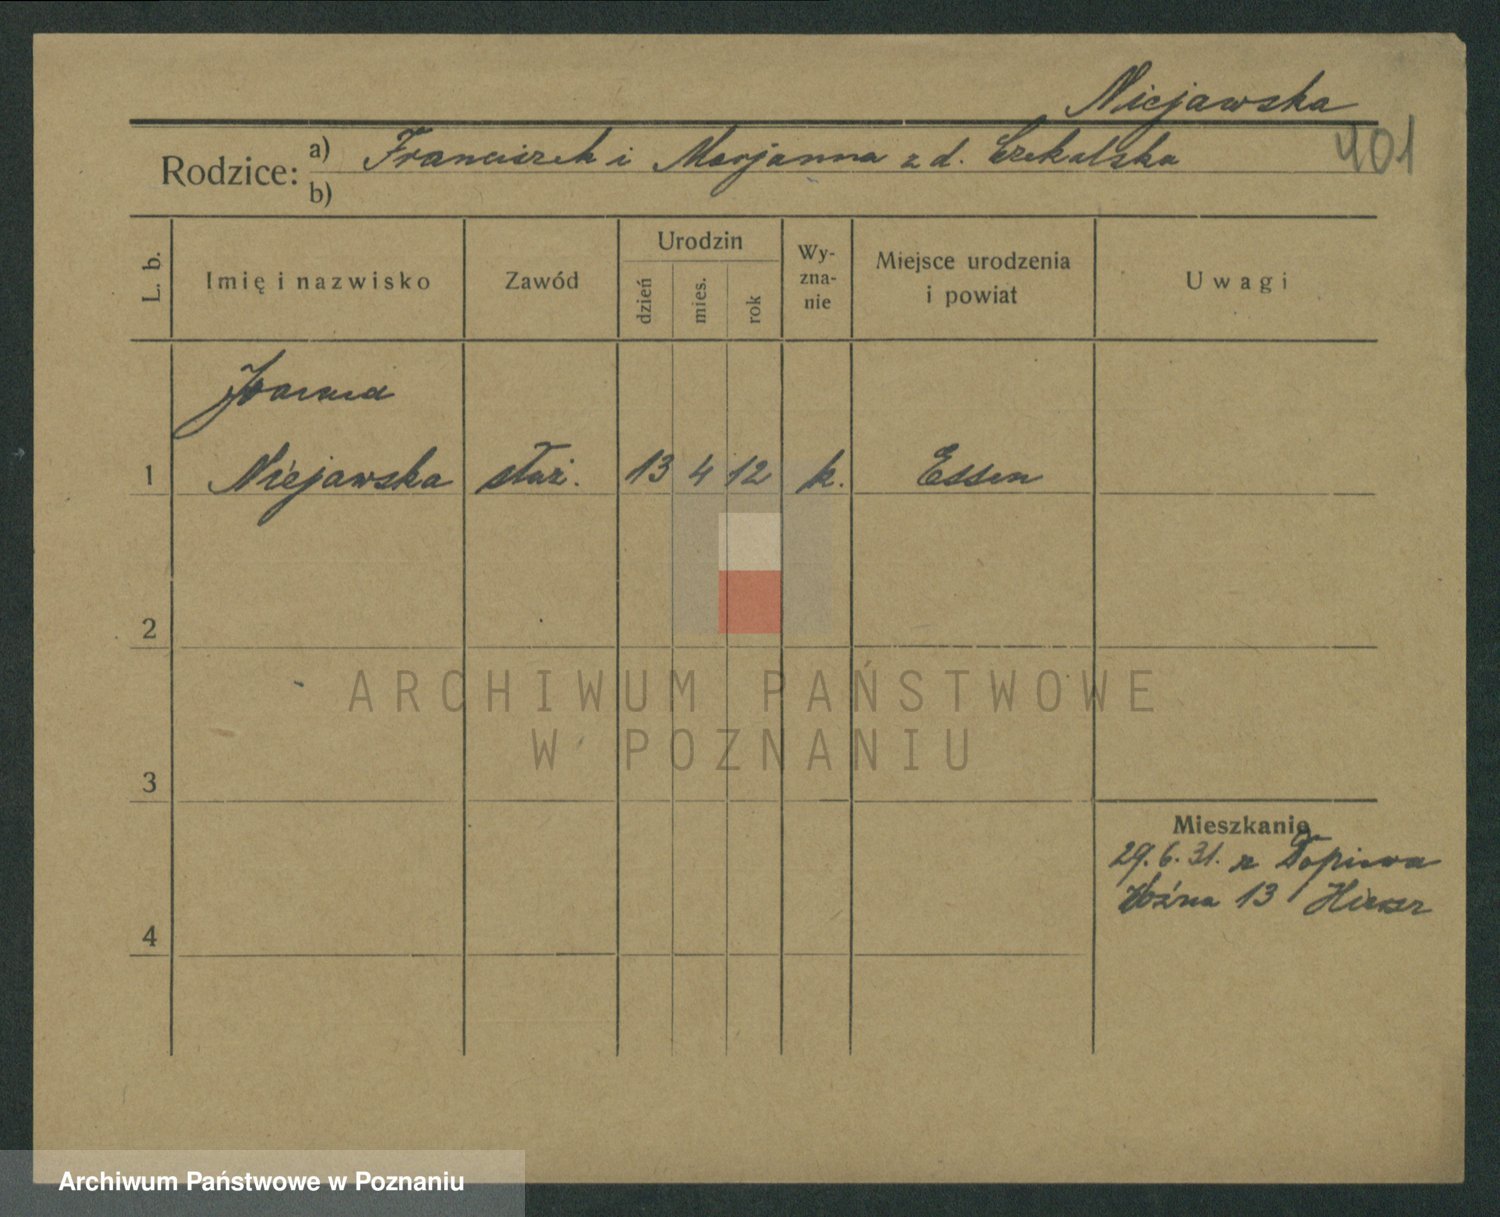 Niejawska
401
Rodzice: a) Franciszek i Marjanna z d. Czekalska
b)
L. b.
Imię i nazwisko
Zawód
Urodzin
dzień
mies.
rok
Wy-
zna-
nie
Miejsce urodzenia
i powiat
Uwagi
Joanna
1 Niejawska służ. 13 4 12 k. Essen
2
3
4
ARCHIWUM PAŃSTWOWE
W POZNANIU
Mieszkanie
29.6.31. z Dopiewa
Woźna 13
Archiwum Państwowe w Poznaniu